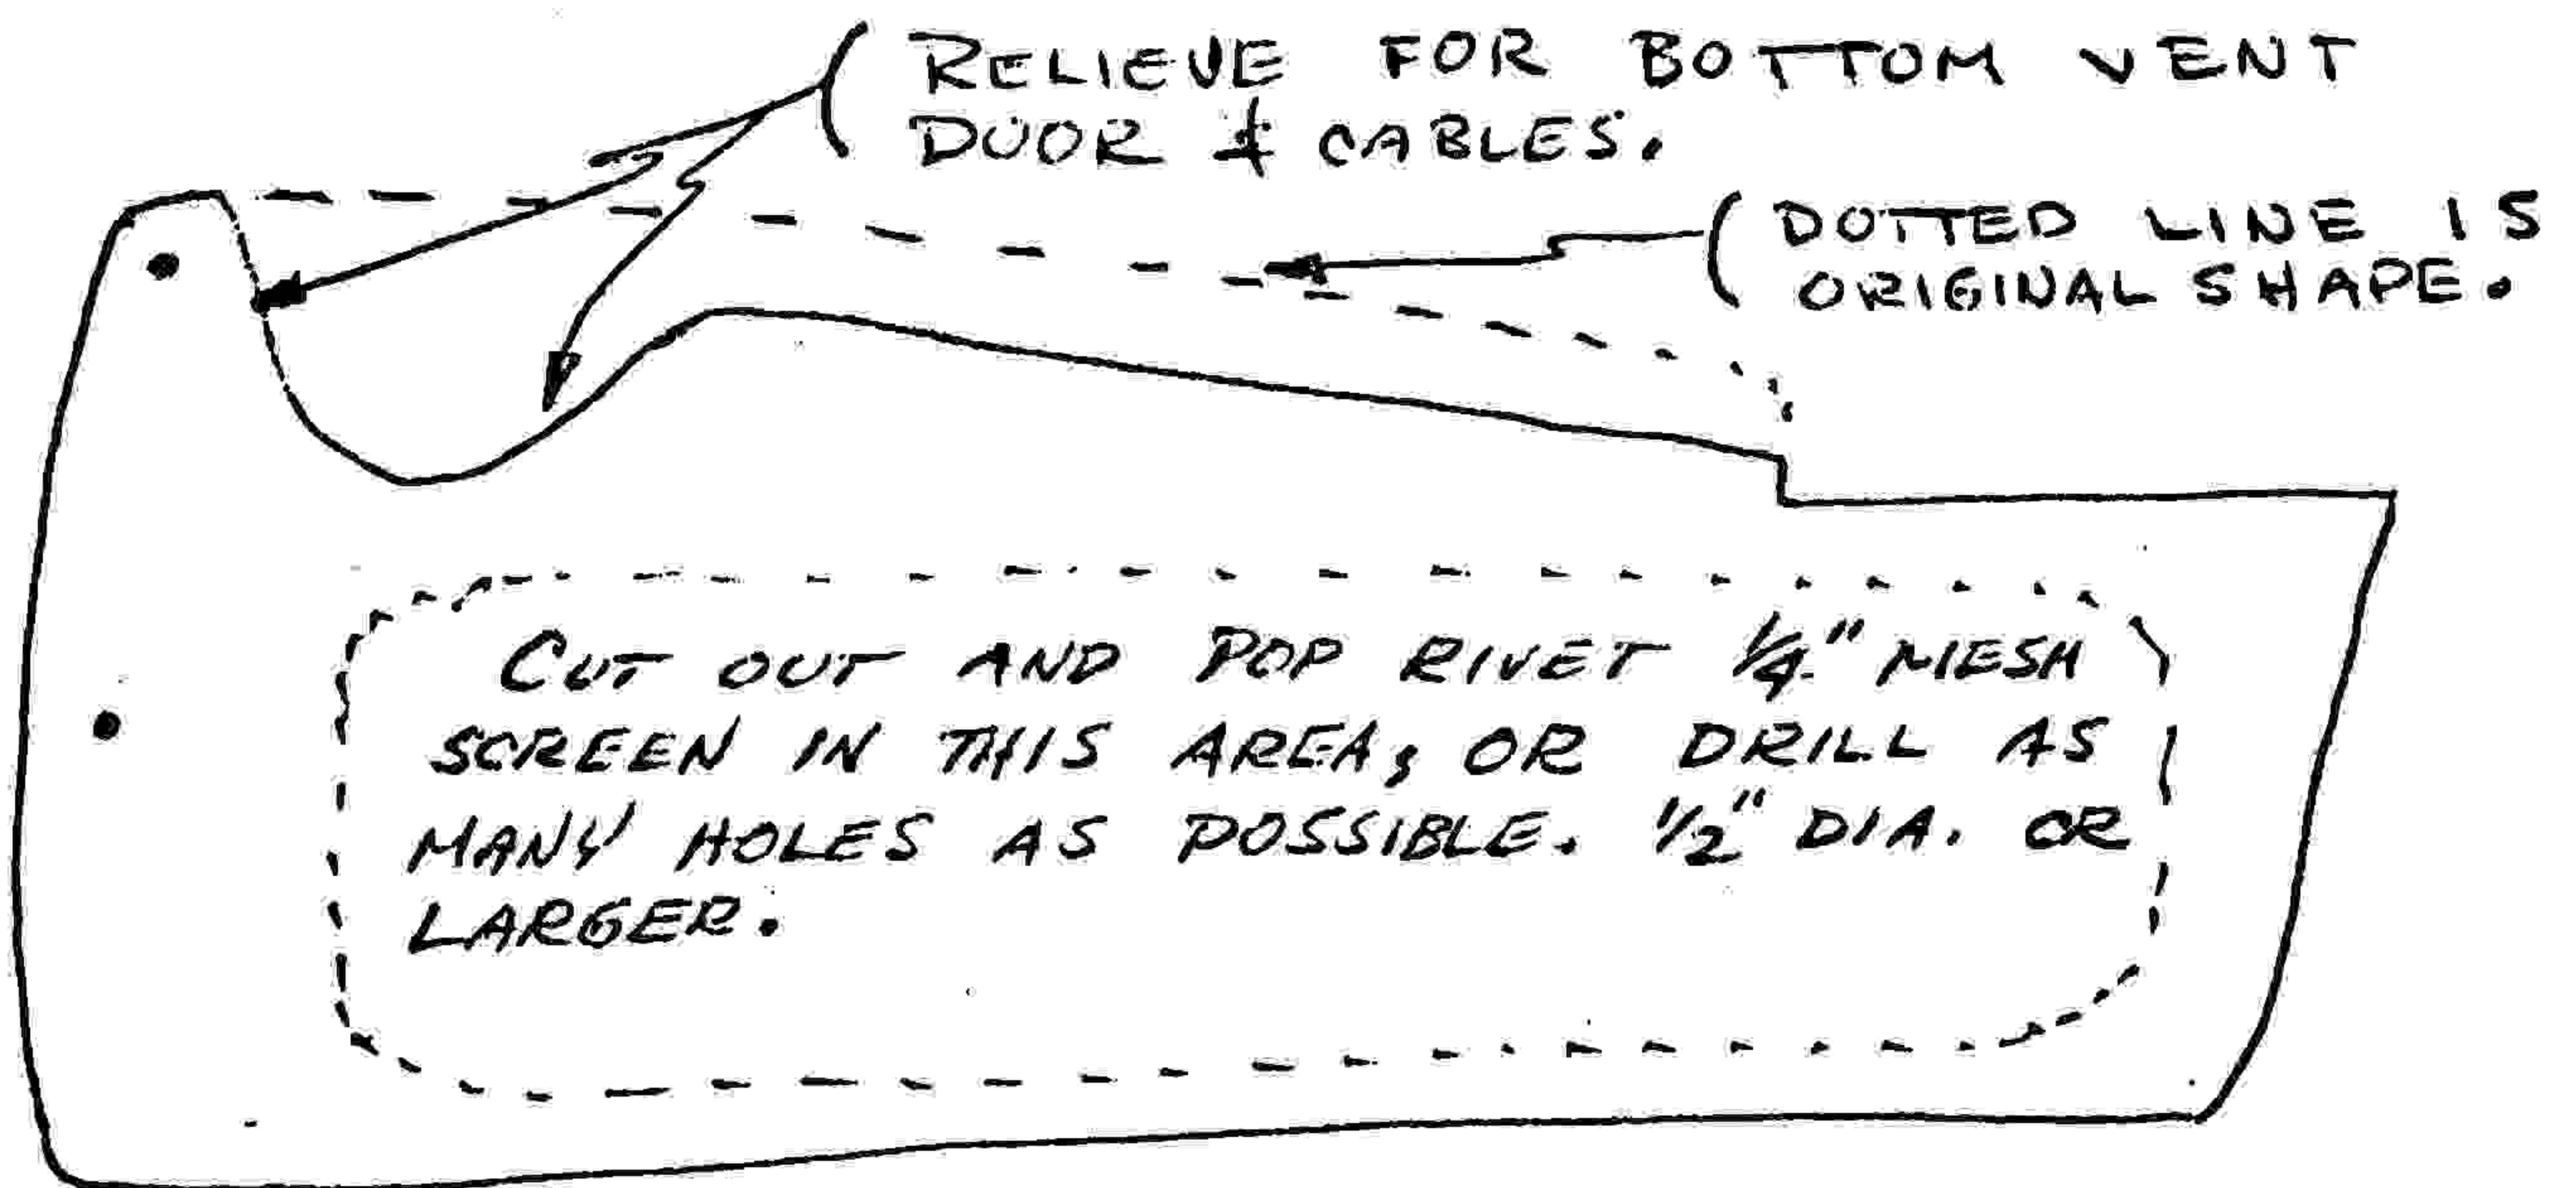 RELIEVE FOR BOTTOM VENT
DOOR & CABLES.
DOTTED LINE IS
ORIGINAL SHAPE.
CUT OUT AND POP RIVET 1/4" MESH
SCREEN IN THIS AREA, OR DRILL AS
MANY HOLES AS POSSIBLE. 1/2" DIA. OR
LARGER.